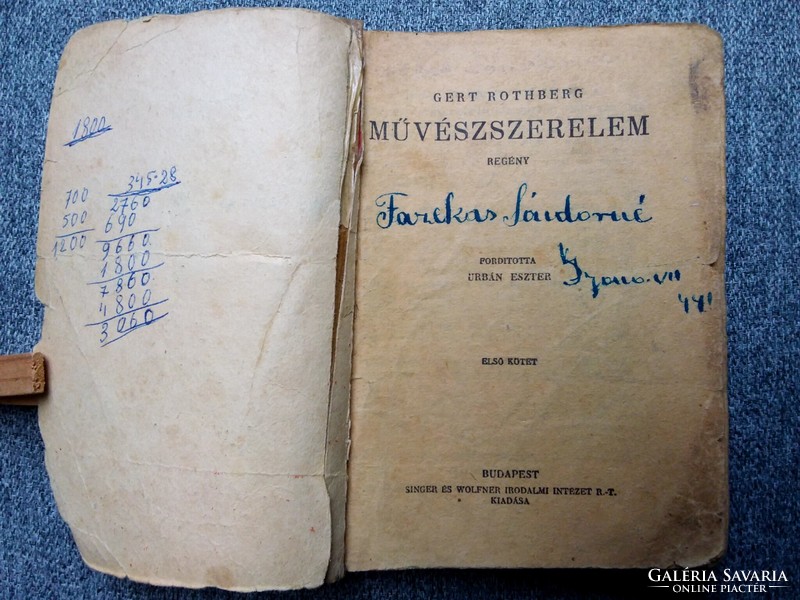 1800
345·28
700 2760
500 690
1200 9660
1800
7860
4800
3060
GERT ROTHBERG
MŰVÉSZSZERELEM
REGÉNY
Farekas Sándorné
FORDITOTTA
URBÁN ESZTER
ELSŐ KÖTET
BUDAPEST
SINGER ÉS WOLFNER IRODALMI INTÉZET R.-T.
KIADÁSA
GALÉRIA SAVARIA
ONLINE PIACTÉR